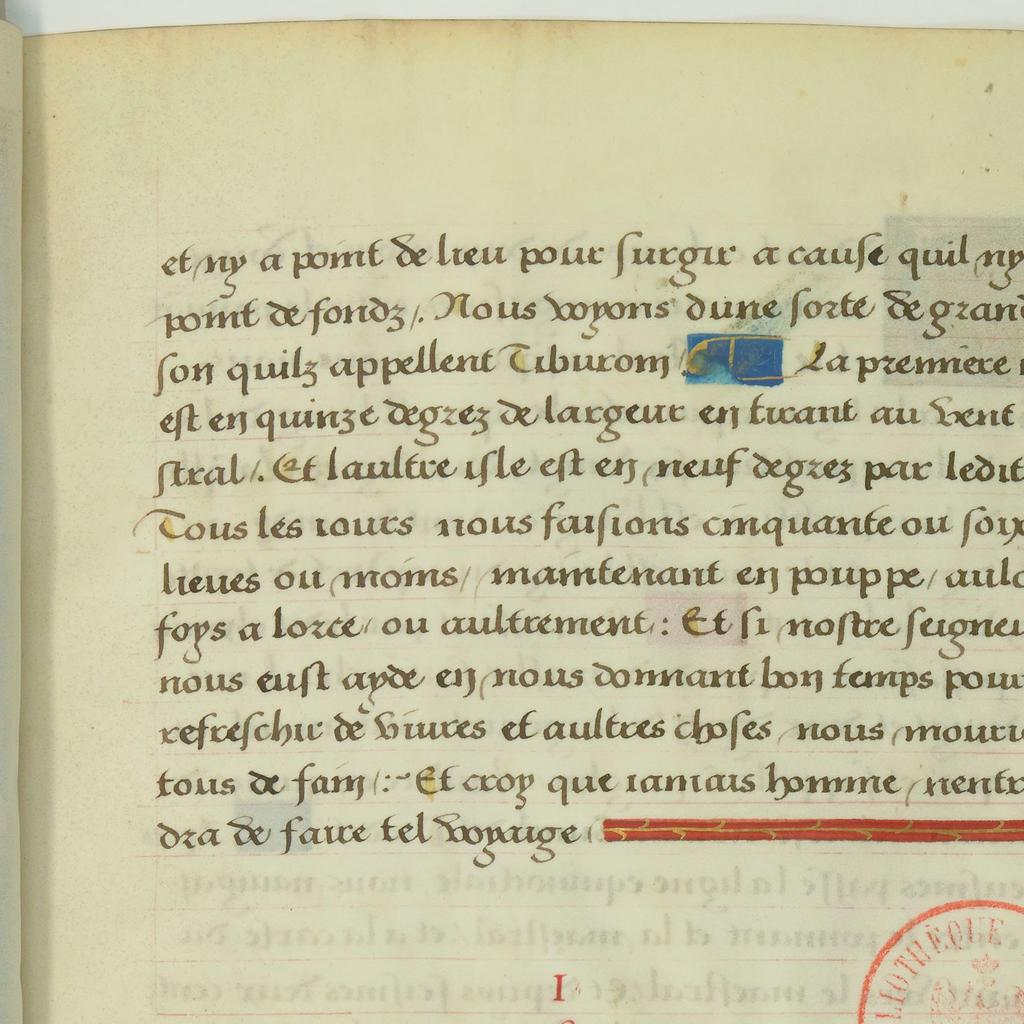 et ny a point de lieu pour surgir a cause quil ny
point de fondz /. Nous voyons dune sorte de grand
son quilz appellent Tiburoni La premiere
est en quinze degrez de largeur en tirant au vent
stral /. Et laultre isle est en neuf degrez par ledit
Tous les iours nous faisions cinquante ou soix
lieues ou moins / maintenant en pouppe / aulc
foys a lorce / ou aultrement : Et si nostre seigneu
nous eust ayde en nous donnant bon temps pour
refreschir de viures et aultres choses nous mouri
tous de faim /:~ Et croy que iamais homme nentr
dra de faire tel voyaige
I
LIOTHÈQUE